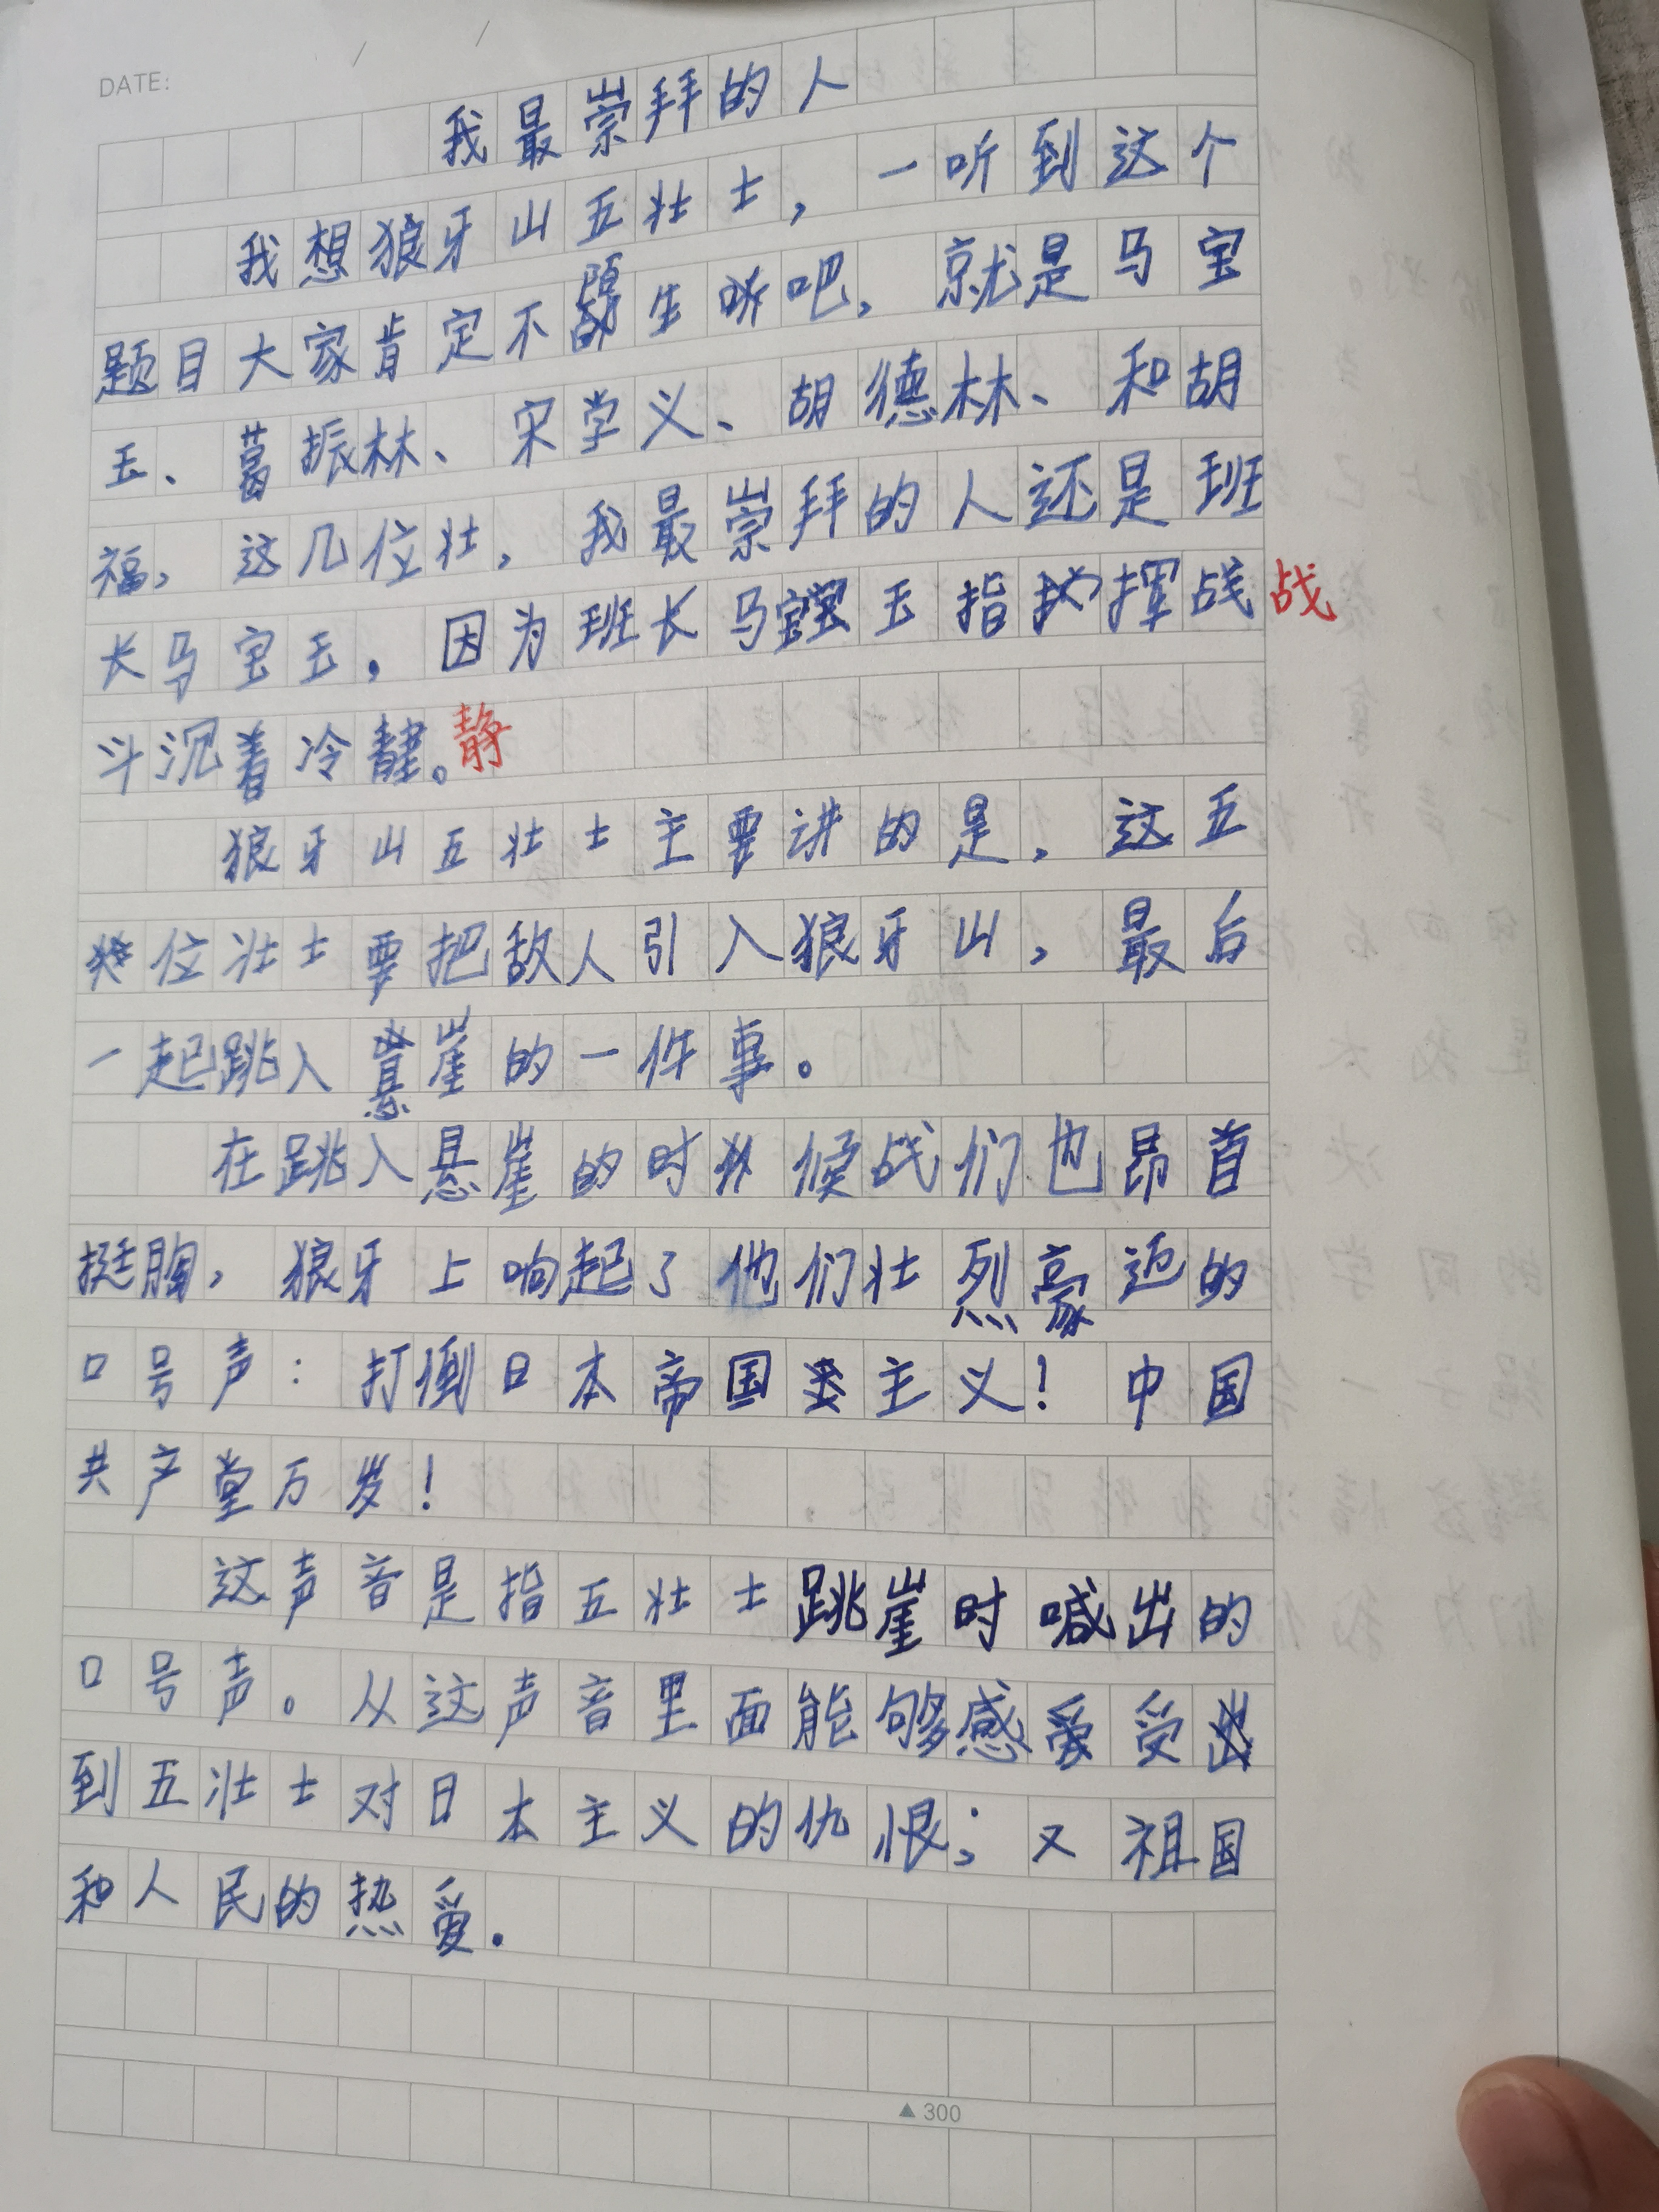 DATE:
我最崇拜的人
我想狼牙山五壮士，一听到这个
题目大家肯定不陌生吧，就是马宝
玉、葛振林、宋学义、胡德林、和胡
福，这几位壮，我最崇拜的人还是班
长马宝玉。因为班长马宝玉指挥战 战
斗沉着冷静。静
狼牙山五壮士主要讲的是，这五
位壮士要把敌人引入狼牙山，最后
一起跳入悬崖的一件事。
在跳入悬崖的时候战们也昂首
挺胸，狼牙上响起了他们壮烈豪迈的
口号声：打倒日本帝国主义！中国
共产堂万岁！
这声音是指五壮士跳崖时喊出的
口号声。从这声音里面能够感受
到五壮士对日本主义的仇恨；又祖国
和人民的热爱.
▲300